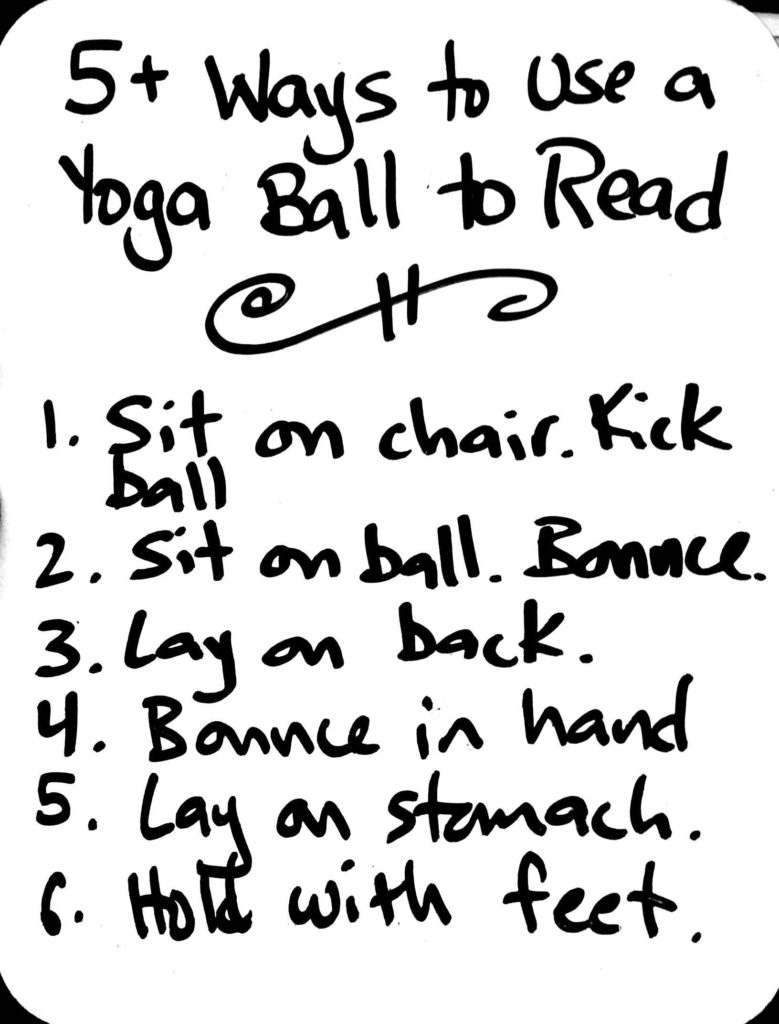 5+ Ways to Use a
Yoga Ball to Read
1. Sit on chair. Kick
ball
2. Sit on ball. Bounce.
3. Lay on back.
4. Bounce in hand
5. Lay on stomach.
6. Hold with feet.